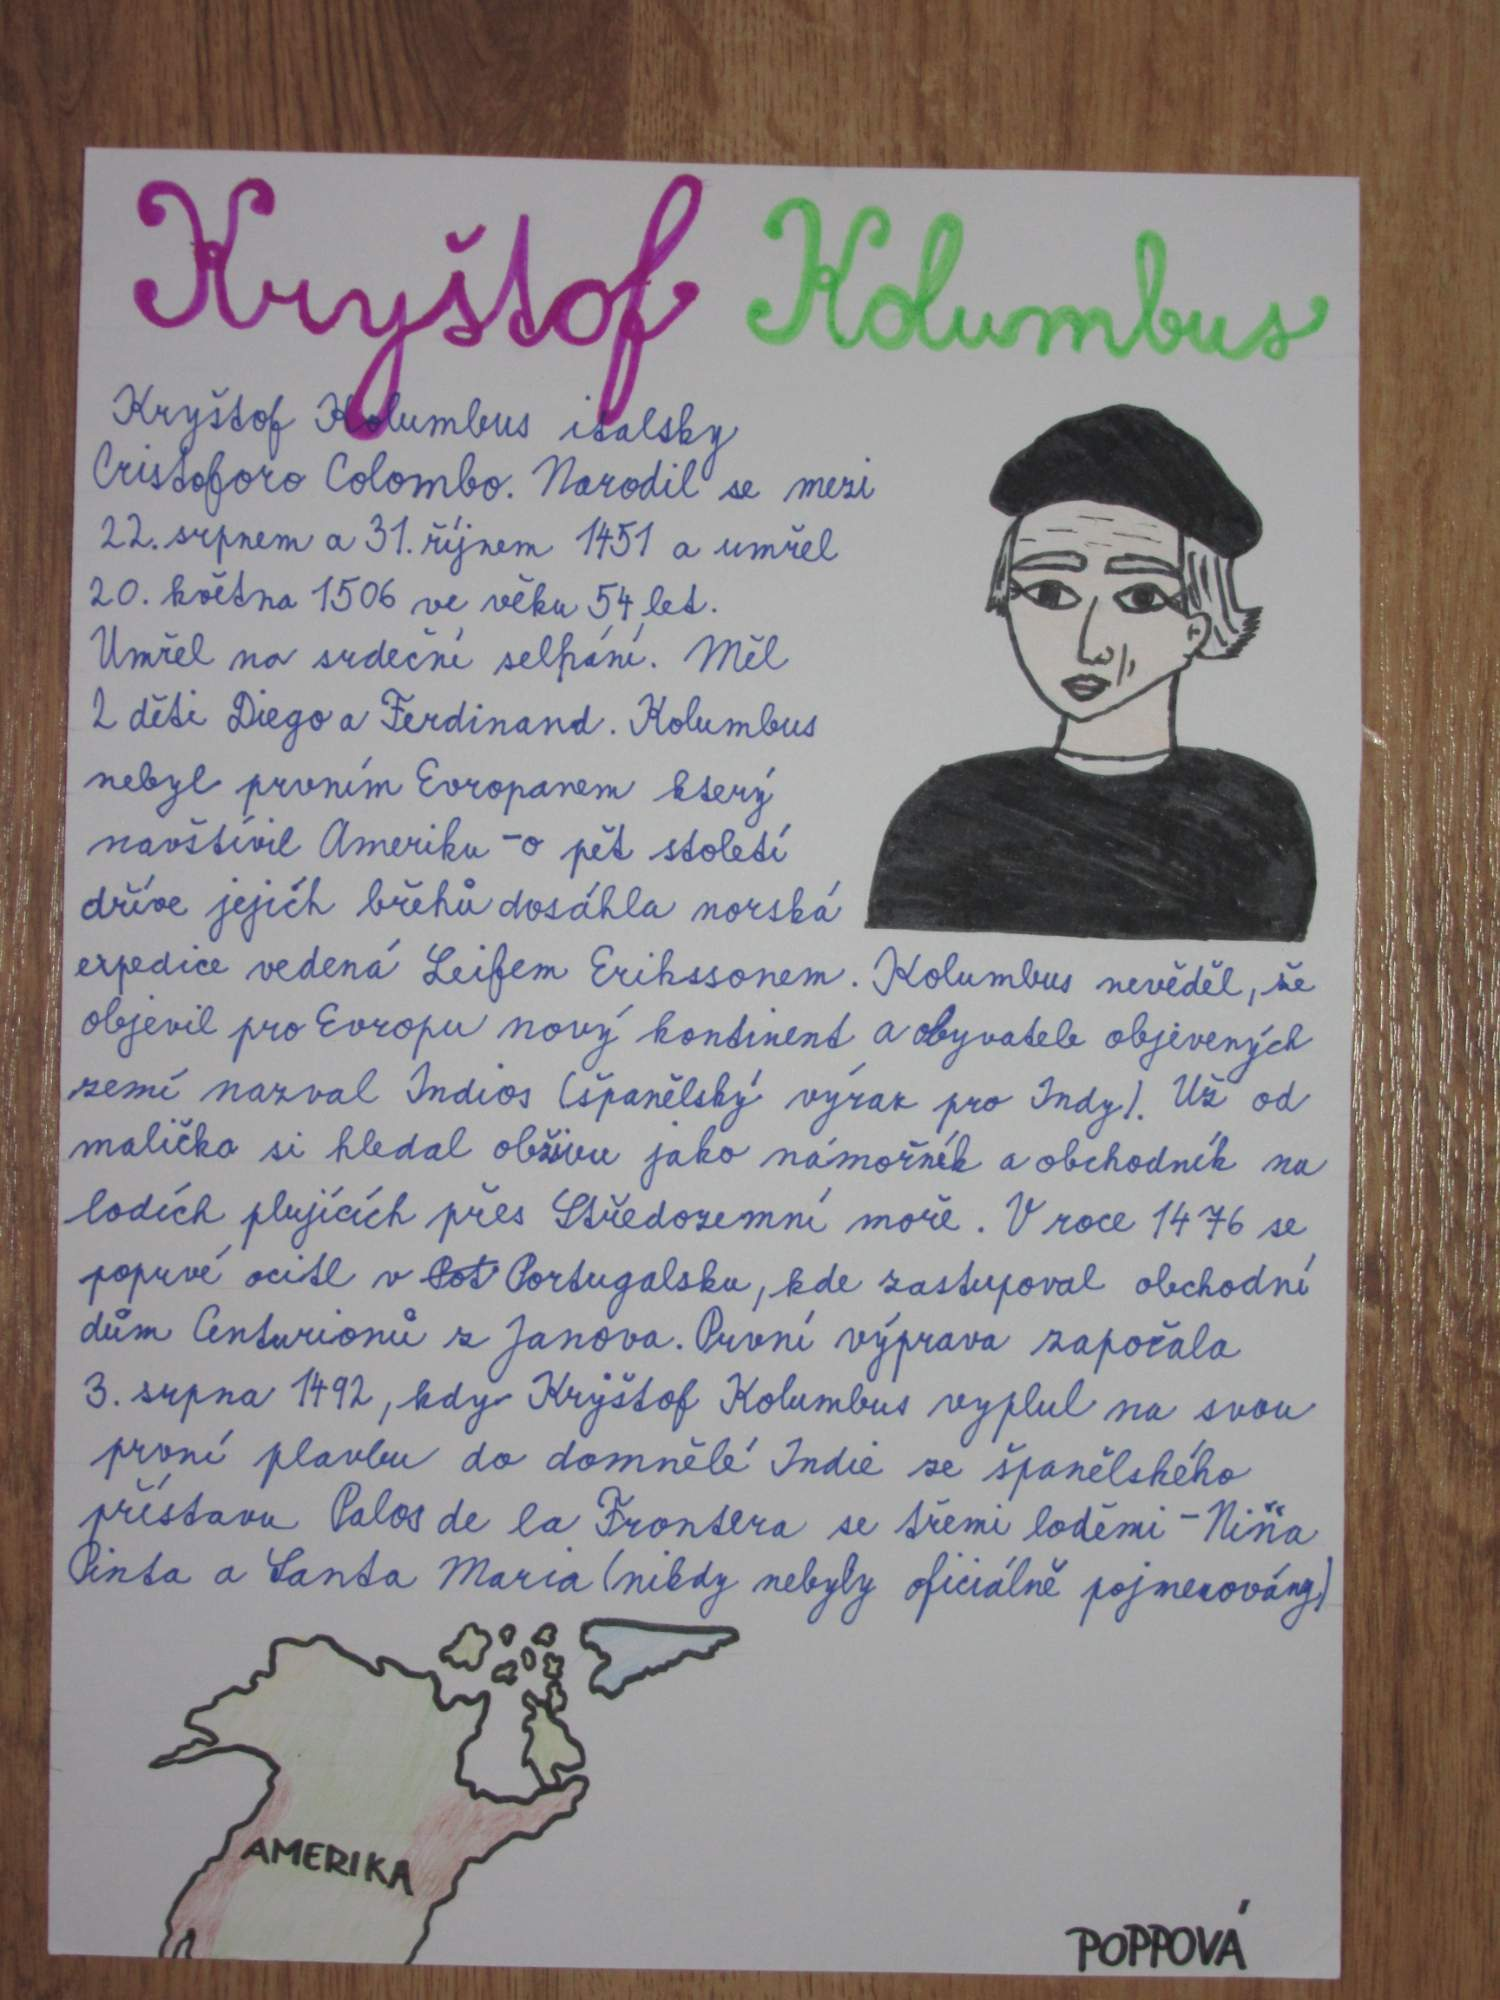 Kryštof Kolumbus
Kryštof Kolumbus italsky
Cristoforo Colombo. Narodil se mezi
22. srpnem a 31. říjnem 1451 a umřel
20. května 1506 ve věku 54 let.
Umřel na srdeční selhání. Měl
2 děti Diego a Ferdinand. Kolumbus
nebyl prvním Evropanem který
navštívil Ameriku - o pět století
dříve jejích břehů dosáhla norská
expedice vedená Leifem Erikssonem. Kolumbus nevěděl, že
objevil pro Evropu nový kontinent a obyvatele objevených
zemí nazval Indios (španělský výraz pro Indy). Už od
malička si hledal obživu jako námořník a obchodník na
lodích plujících přes Středozemní moře. V roce 1476 se
poprvé ocitl v Pot Portugalsku, kde zastupoval obchodní
dům Centurionů z Janova. První výprava započala
3. srpna 1492, kdy Kryštof Kolumbus vyplul na svou
první plavbu do domnělé Indie ze španělského
přístavu Palos de la Frontera se třemi loděmi - Niña
Pinta a Santa Maria (nikdy nebyly oficiálně pojmenovány)
AMERIKA
POPPOVÁ